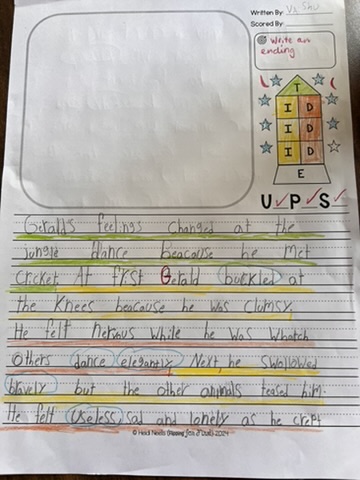 Written By:
Scored By:
Write an
ending
T
I D
I D
I D
E
U P S
Gerald's feelings changed at the
jungle dance beacause he met
Cricket At first Gerald buckled at
the Knees beacause he was clumsy,
He felt nervous while he was whatch
Others dance elegantly Next, he swallowed
bravely but the other animals teased him.
He felt useless, sad and lonely as he crept
© Heidi Neels 2024